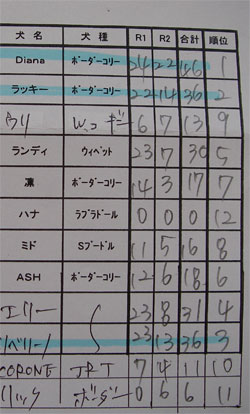 犬名 犬種 R1 R2 合計 順位
Diana ボーダーコリー 24 22 46 1
ラッキー ボーダーコリー 22 14 36 2
ウリ Wコーギー 6 7 13 9
ランディ ウィペット 23 7 30 5
凛 ボーダーコリー 14 3 17 7
ハナ ラブラドール 0 0 0 12
ミド Sプードル 11 5 16 8
ASH ボーダーコリー 12 6 18 6
エリー 23 8 31 4
ベリーノ 23 13 36 3
CORONE JRT 7 4 11 10
リック ボーダー 0 6 6 11